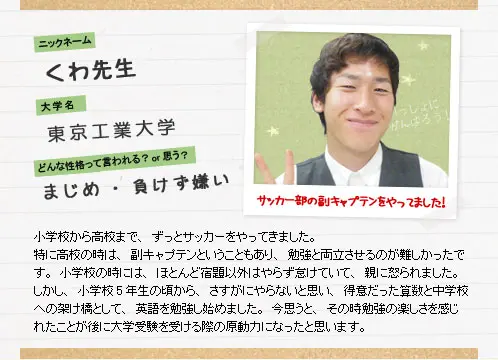 ニックネーム
くわ先生
大学名
東京工業大学
どんな性格って言われる？ or 思う？
まじめ ・ 負けず嫌い
いっしょに
がんばろう！
サッカー部の副キャプテンをやってました！
小学校から高校まで、ずっとサッカーをやってきました。
特に高校の時は、副キャプテンということもあり、勉強と両立させるのが難しかったで
す。小学校の時には、ほとんど宿題以外はやらず怠けていて、親に怒られました。
しかし、小学校５年生の頃から、さすがにやらないと思い、得意だった算数と中学校
への架け橋として、英語を勉強し始めました。今思うと、その時勉強の楽しさを感じ
れたことが後に大学受験を受ける際の原動力になったと思います。